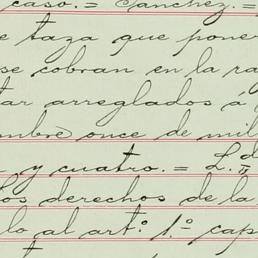 caso. = Sanchez. =
e taza que poner
se cobran en la ra
tar arreglados á
mbre once de mil
a y cuatro. = L.do
os derechos de la
lo al art.º 1.º cap